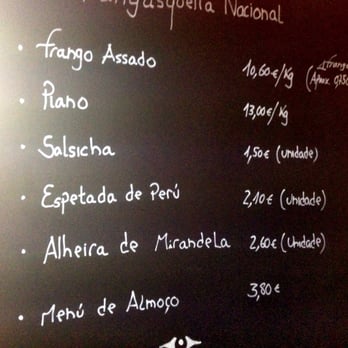 Nacional
• Frango Assado 10,60€/Kg (1 frango
• Piano 13,00€/Kg
• Salsicha 1,50€ (unidade)
• Espetada de Perú 2,10€ (unidade)
• Alheira de Mirandela 2,60€ (unidade)
• Menú de Almoço 3,80€